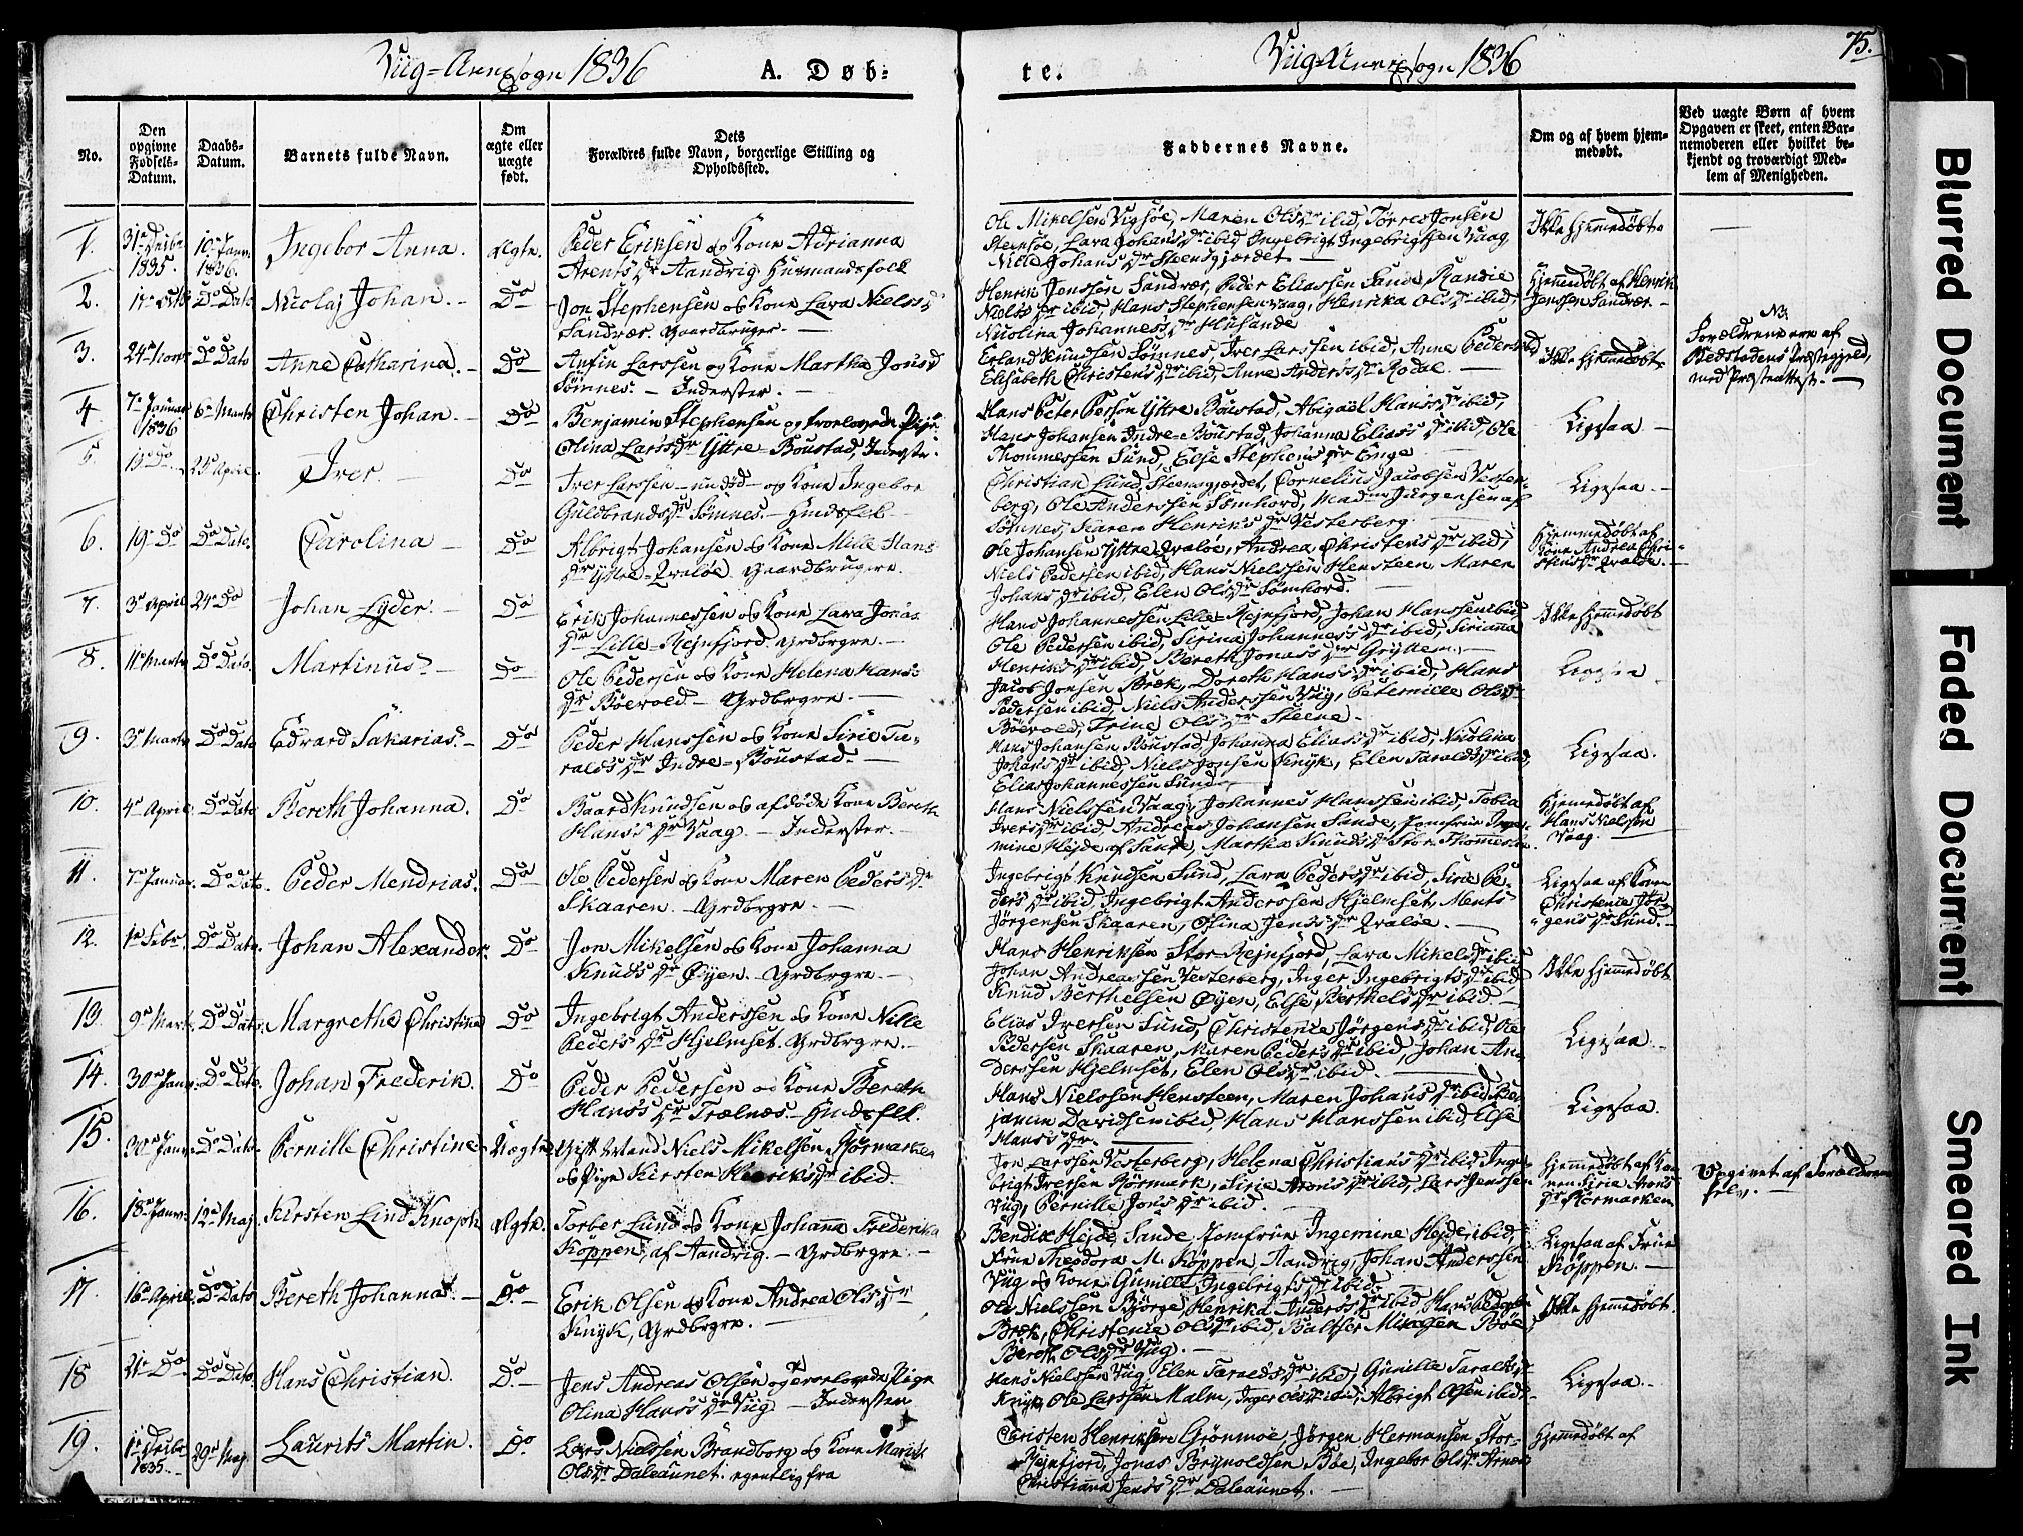 Viig-Annexsogn 1836
A. Døb-
te.
Viig-Annexsogn 1836
75.
No.
Den
opgivne
Fødsels-
Datum.
Daabs-
Datum.
Barnets fulde Navn.
Om
ægte eller
uægte
født.
Dets
Forældres fulde Navn, borgerlige Stilling og
Opholdssted.
Faddernes Navne.
Om og af hvem hjem-
medøbt.
Ved uægte Børn af hvem
Opgaven er skeet, enten Bar-
nemoderen eller hvilket be-
kjendt og troværdigt Med-
lem af Menigheden.
1.
31e Decbr
1835.
10e Janv.
1836.
Ingebor Anna.
Ægte.
Peder Eriksen og Kone Adrianna
Arents Dr Aandvig Huusmandsfolk
Ole Mikelsen Vigsøe, Maren Ols Dr ibid Torres Jonsen
Steensøe, Lava Johans Dr ibid Ingebrigt Ingebrigtsen Vaag
Nille Johans Dr Steensgjærdet
Ikke Hjemmedøbt.
2.
Do Dato
Nicolaj Johan.
Do
Jon Stephensen og Kone Lava Niels Dr
Sandvær. Gaardbruger.
Henrik Jenssen Sandvær, Peder Eliassen Sande, Randie
Niels's Dr ibid, Hans Stephensen Vaag, Henrika Ols Dr ibid,
Nicolina Johannes's Dr Husande
Hjemmedøbt af Henrik
Jenssen Sandvær.
3.
24e Novbr
Do Dato
Anne Catharina.
Do
Anfin Larssen og Kone Martha Jons Dr
Sømnes. Inderster.
Erland Knudsen Sømnes, Iver Larssen ibid, Anne Peders Dr
Elisabeth Christens Dr ibid, Anne Anders's Dr Rodal.
Ikke Hjemmedøbt.
N3.
Forældrene ere af
Bedstadens Præstegjeld,
med Præsteattest.
4
7e Januar
1836
6e Marts
Christen Johan.
Do
Benjamin Stephensen og trolovede Pige
Olina Lars's Dr Yttre-Boustad, Inderste.
Hans Peter Person Yttre Boustad, Abigaël Hans's Dr ibid,
Hans Johansen Indre-Boustad, Johanna Elias's Dr ibid, Ole
Thommessen Sund, Else Stephens Dr Enge
Ligesaa
5.
24e April.
Iver.
Do
Iver Larssen og Kone Ingebor
Guldbrands Dr Sømnes. Huusfolk
Christian Lund, Steensgjærdet, Cornelius Jacobsen Vester-
berg, Ole Anderssen Sømhovd, Madm Jürgensen af
Sømnes, Karen Henriks Dr Vesterberg.
Ligesaa.
6.
19e Do
Do Dato.
Carolina
Do
Albrigt Johansen og Kone Mille Hans
Dr Yttre-Qvaløe. Gaardbrugere.
Ole Johansen Yttre Qvaløe, Andrea Christens Dr ibid,
Niels Pedersen ibid, Hans Nielssen Hensteen, Maren
Johans Dr ibid, Elen Ols Dr Sømhovd.
Hjemmedøbt af
Kone Andrea Chri-
stens Dr Qvaløe.
7.
3e April
24e Do
Johan Lyder.
Do
Erik Johannessen og Kone Lava Jonas
Dr Lille-Rejnfjord. Grdbrgre.
Hans Johannessen Lille-Rejnfjord, Johan Hanssen ibid,
Ole Pedersen ibid, Sirina Johannes's Dr ibid, Sirianna
Henriks Dr ibid, Bereth Jonas's Dr Grytten.
Ikke Hjemmedøbt
8.
11e Marts
Do Dato.
Martinus.
Do
Ole Pedersen og Kone Helena Hans:
Dr Bøevold. Grdbrgre.
Jacob Jonsen Bræk, Doreth Hans's Dr ibid, Hans
Pedersen ibid, Niels Anderssen Viig, Petemille Ols Dr
Bøevold, Trine Ols Dr Steene.
Ligesaa
9.
3e Marts
Do Dato
Edvard Sakarias.
Do
Peder Hanssen og Kone Sirie Ta-
ralds Dr Indre-Boustad.
Hans Johansen Boustad, Johanna Elias's Dr ibid, Nicolina
Johans Dr ibid, Niels Jonsen Knyk, Elen Taralds Dr ibid,
Elias Johannessen Sund.
Ligesaa.
10.
4e April
Do Dato
Bereth Johanna.
Do
Baard Knudsen og afdøde Kone Bereth
Hans's Dr Vaag. Inderster.
Hans Nielssen Vaag, Johannes Hanssen ibid, Tobia
Ivers Dr ibid, Andreas Johansen Sande, Jomfrue Inge-
mine Hejde af Sande, Martha Knuds Dr Stor-Thommesvn
Hjemmedøbt af
Hans Nielsen
Vaag.
11.
7e Januar.
Do Dato.
Peder Mendrias.
Do
Ole Pedersen og Kone Maren Peders's Dr
Skaaren. Grdbrgre.
Ingebrigt Knudsen Sund, Lava Peders Dr ibid, Sirie Pe-
ders Dr ibid, Ingebrigt Anderssen Hjelmset, Ments
Jørgensen Skaaren, Olina Jens's Dr Qvaløe.
Ligesaa af Konen
Christenie Jør-
gens Dr Sund.
12.
1e Febr.
Do Dato.
Johan Alexander.
Do
Jon Mikelsen og Kone Johanna
Knuds Dr Øyen. Grdbrgre.
Hans Henriksen Stor-Rejnfjord, Lava Mikels Dr ibid
Johan Andreassen Vesterberg, Inger Ingebrigts Dr ibid
Knud Berthelsen Øyen, Else Berthels Dr ibid
Ikke Hjemmedøbt
13.
9e Marts.
Do Dato.
Margrethe Christina
Do
Ingebrigt Anderssen og Kone Nille
Peders Dr Hjelmset. Grdbrgre.
Elias Iversen Sund, Christenie Jørgens Dr ibid, Ole
Pedersen Skaaren, Maren Peders Dr ibid, Johan An-
derssen Hjelmset, Elen Ols Dr ibid.
Ligesaa.
14.
30e Janv.
Do Dato.
Johan Frederik.
Do
Peder Pedersen og Kone Bereth
Hans's Dr Trælnæs. Huusfolk.
Hans Nielssen Hensteen, Maren Johans Dr ibid, Ben-
jamin Davidsen ibid, Hans Hanssen ibid, Else
Hans's Dr.
Ligesaa.
15.
30e Janv.
Do Dato.
Pernille Christine
Uægte
Gift Mand Niels Mikelsen Kjørmarken
og Pige Kirsten Henriks Dr ibid
Jon Larssen Vesterberg, Helena Christians Dr ibid Inge-
brigt Iversen Kjørmark, Sirie Arons Dr ibid, Lars Jenssen
Viig, Pernille Jons Dr ibid.
Hjemmedøbt af Ko-
nen Sirie Arons
Dr Kjørmarken
Opgivet af Forældrene
selv.
16.
18e Janv.
12e Maj.
Kirsten Lind Knoph
Ægte.
Torber Lund og Kone Johanna Frederika
Köppen, af Aandvig. Grdbrgre.
Bendix Hejde, Sande, Jomfrue Ingemine Hejde ibid,
Frue Theodora M. Köppen, Aandvig, Johan Anderssen
Viig og Kone Gunille Ingebrigts Dr ibid.
Ligesaa af Frue
Köppen.
17.
16e April
Do Dato
Bereth Johanna.
Do
Erik Olsen og Kone Andrea Ols Dr
Knyk, Grdbrgre.
Ole Nielssen Bjørge, Henrika Anders's Dr ibid, Hans Pedersen
Bræk, Christenie Ols Dr ibid, Balther Mikelsen Bøe,
Bereth Ols Dr Viig.
Ikke Hjemmedøbt.
18
21e Do
Do Dato
Hans Christian.
Do.
Jens Andreas Olsen og trolovede Pige
Olina Hans's Dr Viig. Inderster
Hans Nielssen Viig, Elen Taralds Dr ibid, Gunille Taralds Dr
Knyk, Ole Larssen Malm, Inger Ols Dr ibid, Albrigt Olsen ibid.
Ligesaa.
19.
1e Decbr
1835.
29e Maj.
Laurits Martin.
Do
Lars Nielssen Brandborg og Kone Marith
Ols Dr Daleaunet. egentlig fra
Christen Henriksen Grønmoe, Jørgen Hermansen Stor-
Rejnfjord, Jonas Brynoldsen Bøe, Ingebor Ols Dr
Christianna Jens's Dr Daleaunet.
Hjemmedøbt af
Blurred Document
Faded Document
Smeared Ink